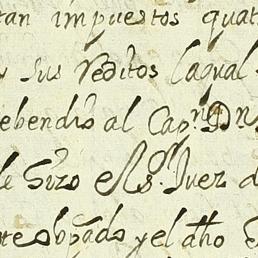 tan impuestos quat
y sus Reditos laqual
ebendio al Cap.n Dn
le hizo el Sor. Juez d
te obpado y el dho